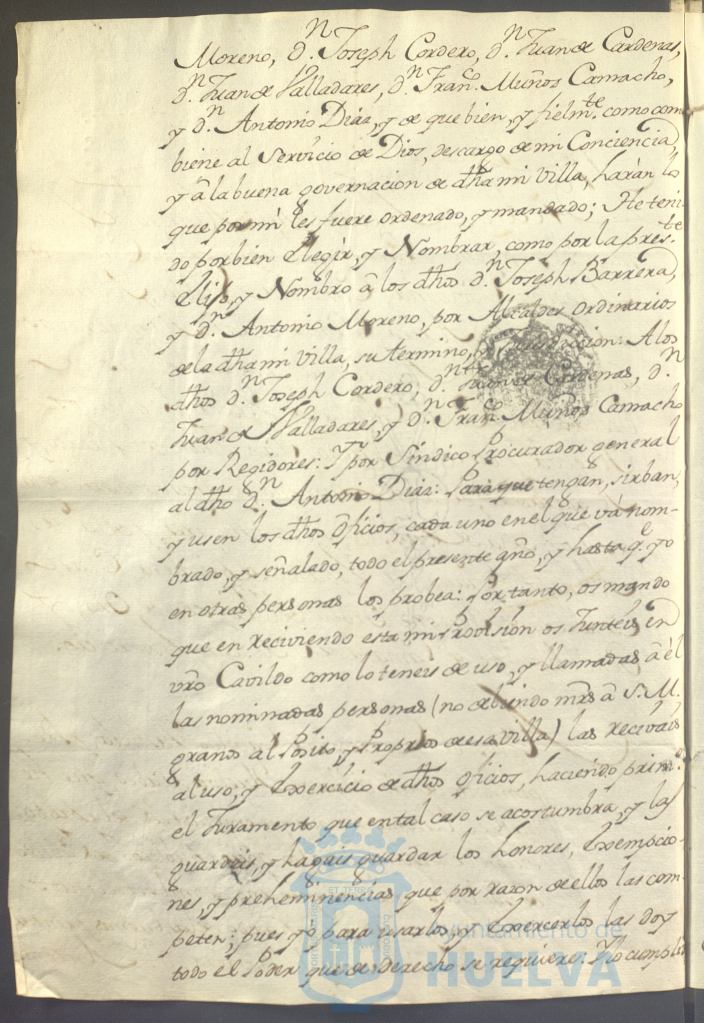 Moreno, Dn. Joseph Cordero, Dn. Juan de Cardenas,
Dn. Juan de Valladares, Dn. Franco. Muños Camacho,
y Dn. Antonio Diaz, y de que bien, y fielmte. como com
biene al Servicio de Dios, descargo de mi Conciencia,
y â la buena governacion de dha mi Villa, harân lo
que por mi les fuere ordenado, y mandado; He teni
do por bien Elegir, y Nombrar, como por la preste.
Elijo, y Nombro â los dhos Dn. Joseph Barrera,
y Dn. Antonio Moreno, por Alcaldes Ordinarios
de la dha mi Villa, su termino, y Jurisdiccion: A los
dhos Dn. Joseph Cordero, Dn. Juan de Cardenas, Dn.
Juan de Valladares, y Dn. Franco. Muños Camacho
por Regidores: Y por Sindico Procurador general
al dho Dn. Antonio Diaz: Para que tengan, sirban,
y usen los dhos Oficios, cada uno en el que vâ nom-
brado, y señalado, todo el presente año, y hasta qe. yo
en otras personas los probea: Por tanto, os mando
que en reciviendo esta mi Provision os Junteis en
vro Cavildo como lo teneis de uso, y llamadas â êl
las nominadas personas (no debiendo mrs â S. M.
granos al Posito, y Proprios de esa villa) las recivais
al uso, y Exercicio de dhos oficios, haciendo primo.
el Juramento que en tal caso se acostumbra, y las
guardeis, y hagais guardar los honores, Exempcio-
nes, y preheminencias que por razon de ellos las com-
peten; pues yo para usarlos, y Exercerlos las doy
todo el Poder que de derecho se requiere: Y lo cumpli
Ayuntamiento de
HUELVA